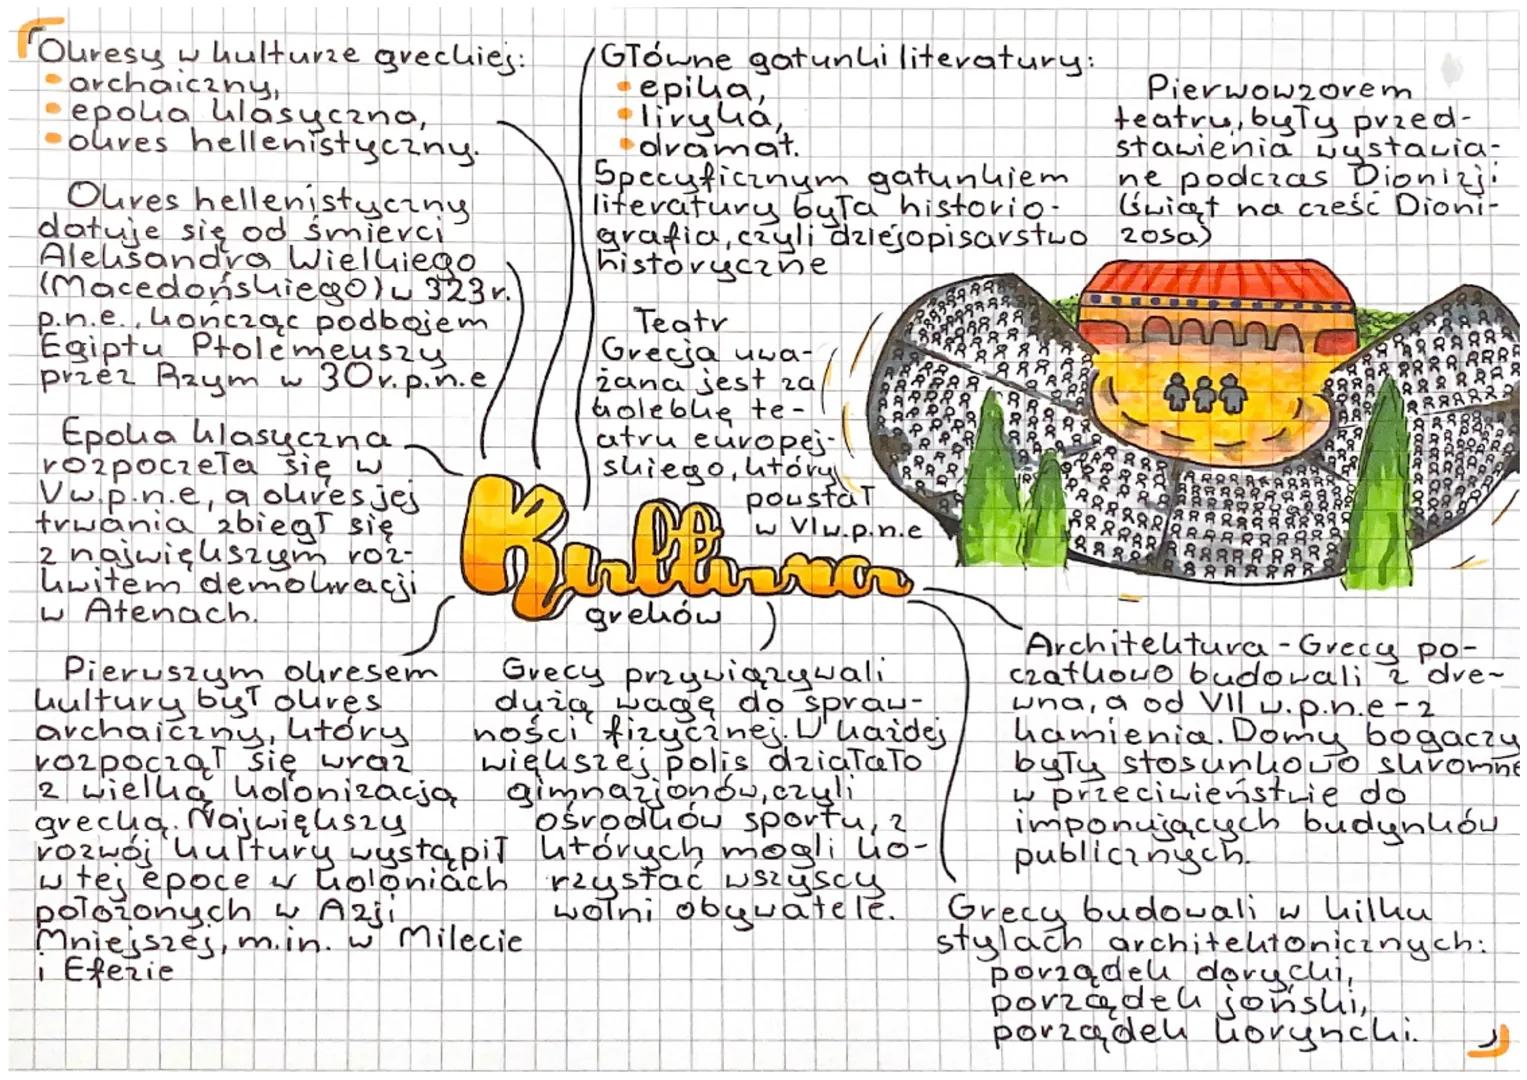 Okresy w kulturze greckiej:
• archaiczny,
• epoka klasyczna,
• okres hellenistyczny.
Okres hellenistyczny
datuje się od śmierci
Aleksandra Wielkiego
(Macedońskiego) w 323r.
p.n.e., kończąc podbojem
Egiptu Ptolemeuszy
przez Rzym w 30r.p.n.e
Epoka klasyczna
rozpoczęła się w
V w.p.n.e, a okres jej
trwania zbiegł się
z największym roz-
kwitem demokracji
w Atenach.
Pierwszym okresem
kultury był okres
archaiczny, który
rozpoczął się wraz
z wielką kolonizacją
grecką. Największy
rozwój kultury wystąpił
w tej epoce w koloniach
położonych w Azji
Mniejszej, m.in. w Milecie
i Efezie
Główne gatunki literatury:
• epika,
• liryka,
• dramat.
Specyficznym gatunkiem
literatury była historio-
grafia, czyli dziejopisarstwo
historyczne
Teatr
Grecja uwa-
żana jest za
kolebkę te-
atru europej-
skiego, który
powstał
w VI w.p.n.e
Pierwowzorem
teatru, były przed-
stawienia wystawia-
ne podczas Dionizji
(świąt na cześć Dioni-
zosa)
Kultura
greków
Grecy przywiązywali
dużą wagę do spraw-
ności fizycznej. W każdej
większej polis działało
gimnazjonów, czyli
ośrodków sportu, z
których mogli ko-
rzystać wszyscy
wolni obywatele.
Architektura - Grecy po-
czątkowo budowali z dre-
wna, a od VII w.p.n.e - z
kamienia. Domy bogaczy
były stosunkowo skromne
w przeciwieństwie do
imponujących budynków
publicznych.
Grecy budowali w kilku
stylach architektonicznych:
porządek dorycki,
porządek joński,
porządek koryncki.